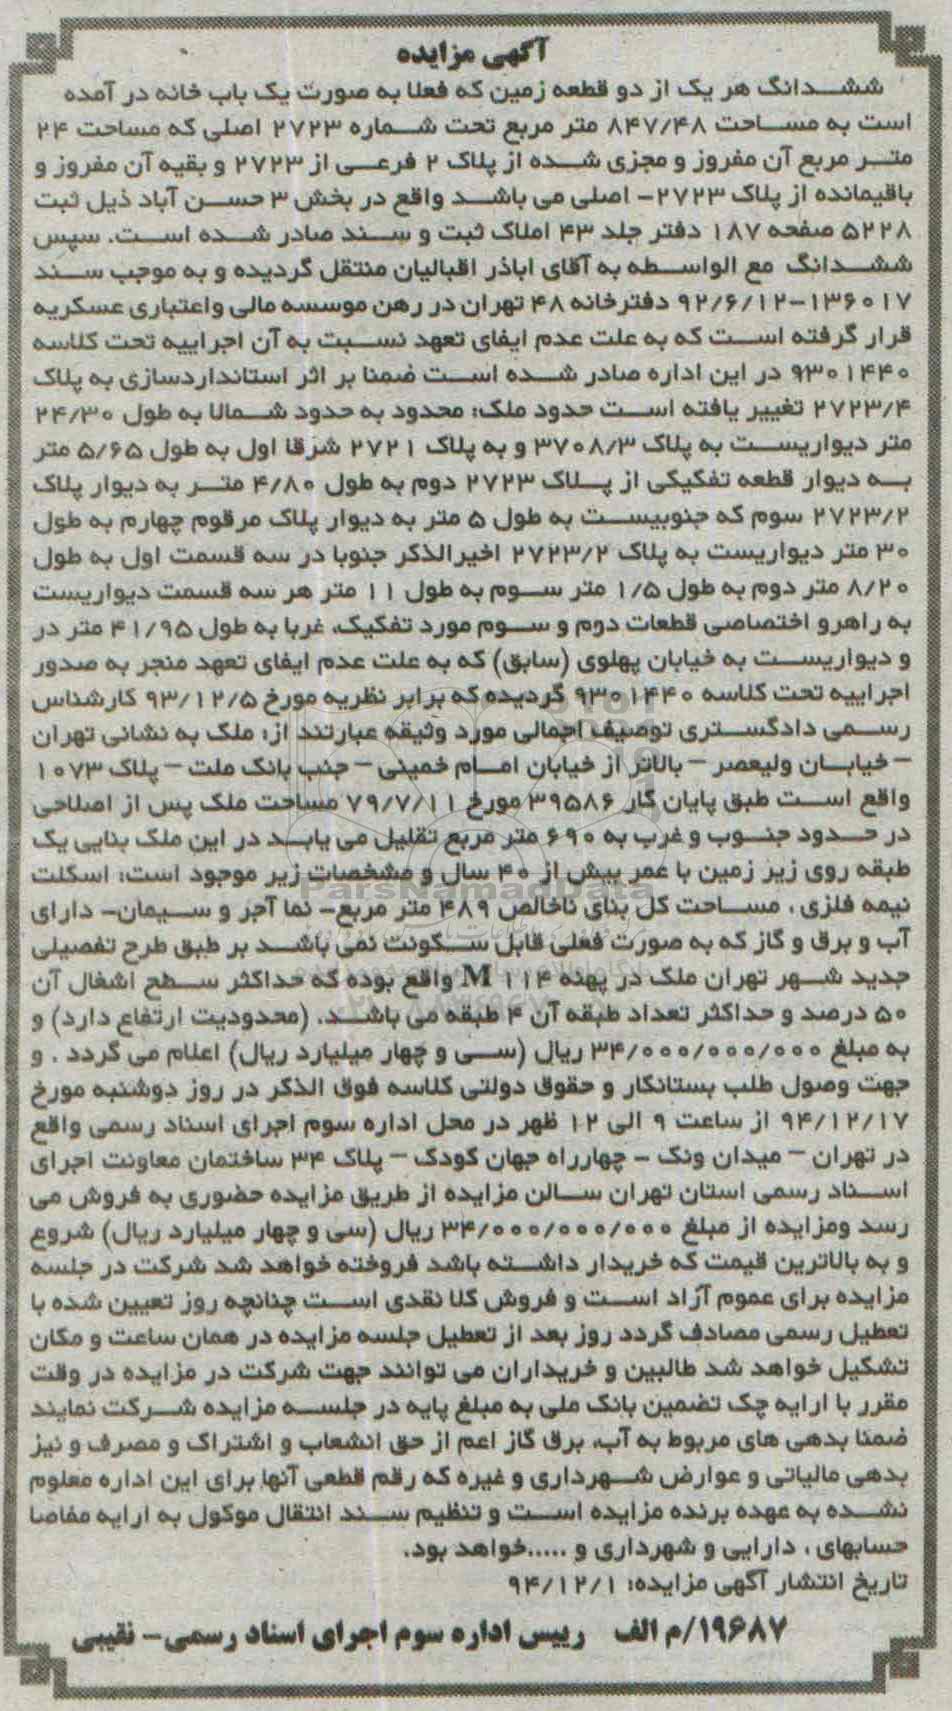 آگهی مزایده
ششدانگ هر یک از دو قطعه زمین که فعلا به صورت یک باب خانه در آمده
است به مساحت ۸۴۷/۴۸ متر مربع تحت شماره ۲۷۲۳ اصلی که مساحت ۲۴
متر مربع آن مفروز و مجزی شده از پلاک ۲ فرعی از ۲۷۲۳ و بقیه آن مفروز و
باقیمانده از پلاک ۲۷۲۳- اصلی می باشد واقع در بخش ۳ حسن آباد ذیل ثبت
۵۲۲۸ صفحه ۱۸۷ دفتر جلد ۴۳ املاک ثبت و سند صادر شده است. سپس
ششدانگ مع الواسطه به آقای اباذر اقبالیان منتقل گردیده و به موجب سند
۱۳۶۰۱۷-۹۲/۶/۱۲ دفترخانه ۴۸ تهران در رهن موسسه مالی واعتباری عسکریه
قرار گرفته است که به علت عدم ایفای تعهد نسبت به آن اجراییه تحت کلاسه
۹۳۰۱۴۴۰ در این اداره صادر شده است ضمنا بر اثر استانداردسازی به پلاک
۲۷۲۳/۴ تغییر یافته است حدود ملک: محدود به حدود شمالا به طول ۲۴/۳۰
متر دیواریست به پلاک ۳۷۰۸/۳ و به پلاک ۲۷۲۱ شرقا اول به طول ۵/۶۵ متر
به دیوار قطعه تفکیکی از پلاک ۲۷۲۳ دوم به طول ۴/۸۰ متر به دیوار پلاک
۲۷۲۳/۲ سوم که جنوبیست به طول ۵ متر به دیوار پلاک مرقوم چهارم به طول
۳۰ متر دیواریست به پلاک ۲۷۲۳/۲ اخیرالذکر جنوبا در سه قسمت اول به طول
۸/۲۰ متر دوم به طول ۱/۵ متر سوم به طول ۱۱ متر هر سه قسمت دیواریست
به راهرو اختصاصی قطعات دوم و سوم مورد تفکیک، غربا به طول ۴۱/۹۵ متر در
و دیواریست به خیابان پهلوی (سابق) که به علت عدم ایفای تعهد منجر به صدور
اجراییه تحت کلاسه ۹۳۰۱۴۴۰ گردیده که برابر نظریه مورخ ۹۳/۱۲/۵ کارشناس
رسمی دادگستری توصیف اجمالی مورد وثیقه عبارتند از: ملک به نشانی تهران
– خیابان ولیعصر – بالاتر از خیابان امام خمینی – جنب بانک ملت – پلاک ۱۰۷۳
واقع است طبق پایان کار ۳۹۵۸۶ مورخ ۷۹/۷/۱۱ مساحت ملک پس از اصلاحی
در حدود جنوب و غرب به ۶۹۰ متر مربع تقلیل می یابد در این ملک بنایی یک
طبقه روی زیر زمین با عمر بیش از ۴۰ سال و مشخصات زیر موجود است: اسکلت
نیمه فلزی ، مساحت کل بنای ناخالص ۴۸۹ متر مربع- نما آجر و سیمان- دارای
آب و برق و گاز که به صورت فعلی قابل سکونت نمی باشد بر طبق طرح تفصیلی
جدید شهر تهران ملک در پهنه M ۱۱۴ واقع بوده که حداکثر سطح اشغال آن
۵۰ درصد و حداکثر تعداد طبقه آن ۴ طبقه می باشد. (محدودیت ارتفاع دارد) و
به مبلغ ۳۴/۰۰۰/۰۰۰/۰۰۰ ریال (سی و چهار میلیارد ریال) اعلام می گردد . و
جهت وصول طلب بستانکار و حقوق دولتی کلاسه فوق الذکر در روز دوشنبه مورخ
۹۴/۱۲/۱۷ از ساعت ۹ الی ۱۲ ظهر در محل اداره سوم اجرای اسناد رسمی واقع
در تهران – میدان ونک - چهارراه جهان کودک – پلاک ۳۴ ساختمان معاونت اجرای
اسناد رسمی استان تهران سالن مزایده از طریق مزایده حضوری به فروش می
رسد ومزایده از مبلغ ۳۴/۰۰۰/۰۰۰/۰۰۰ ریال (سی و چهار میلیارد ریال) شروع
و به بالاترین قیمت که خریدار داشته باشد فروخته خواهد شد شرکت در جلسه
مزایده برای عموم آزاد است و فروش کلا نقدی است چنانچه روز تعیین شده با
تعطیل رسمی مصادف گردد روز بعد از تعطیل جلسه مزایده در همان ساعت و مکان
تشکیل خواهد شد طالبین و خریداران می توانند جهت شرکت در مزایده در وقت
مقرر با ارایه چک تضمین بانک ملی به مبلغ پایه در جلسه مزایده شرکت نمایند
ضمنا بدهی های مربوط به آب، برق گاز اعم از حق انشعاب و اشتراک و مصرف و نیز
بدهی مالیاتی و عوارض شهرداری و غیره که رقم قطعی آنها برای این اداره معلوم
نشده به عهده برنده مزایده است و تنظیم سند انتقال موکول به ارایه مفاصا
حسابهای ، دارایی و شهرداری و .....خواهد بود.
تاریخ انتشار آگهی مزایده: ۹۴/۱۲/۱
۱۹۶۸۷/م الف رییس اداره سوم اجرای اسناد رسمی- نقیبی
ParsNamadData